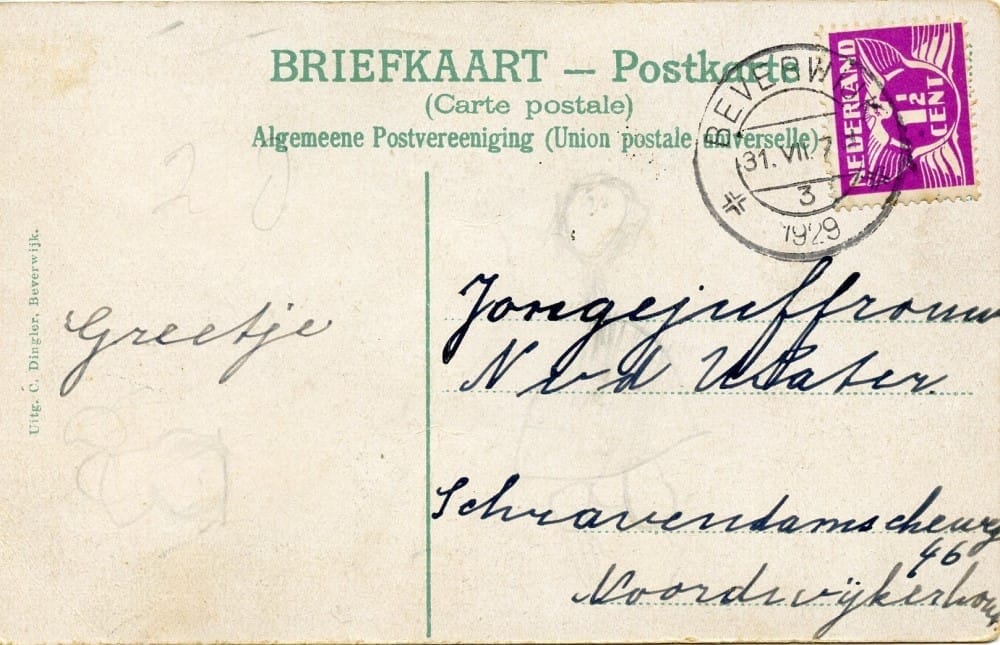 BRIEFKAART — Postkarte
(Carte postale)
Algemeene Postvereeniging (Union postale universelle)
NEDERLAND
1½
CENT
BEVERWIJK
31. VII. 7
3
1929
Uitg. C. Dingler, Beverwijk.
Greetje
Jongejuffrouw
N v d Water.
Schravendamscheweg
46
Noordwijkerhout